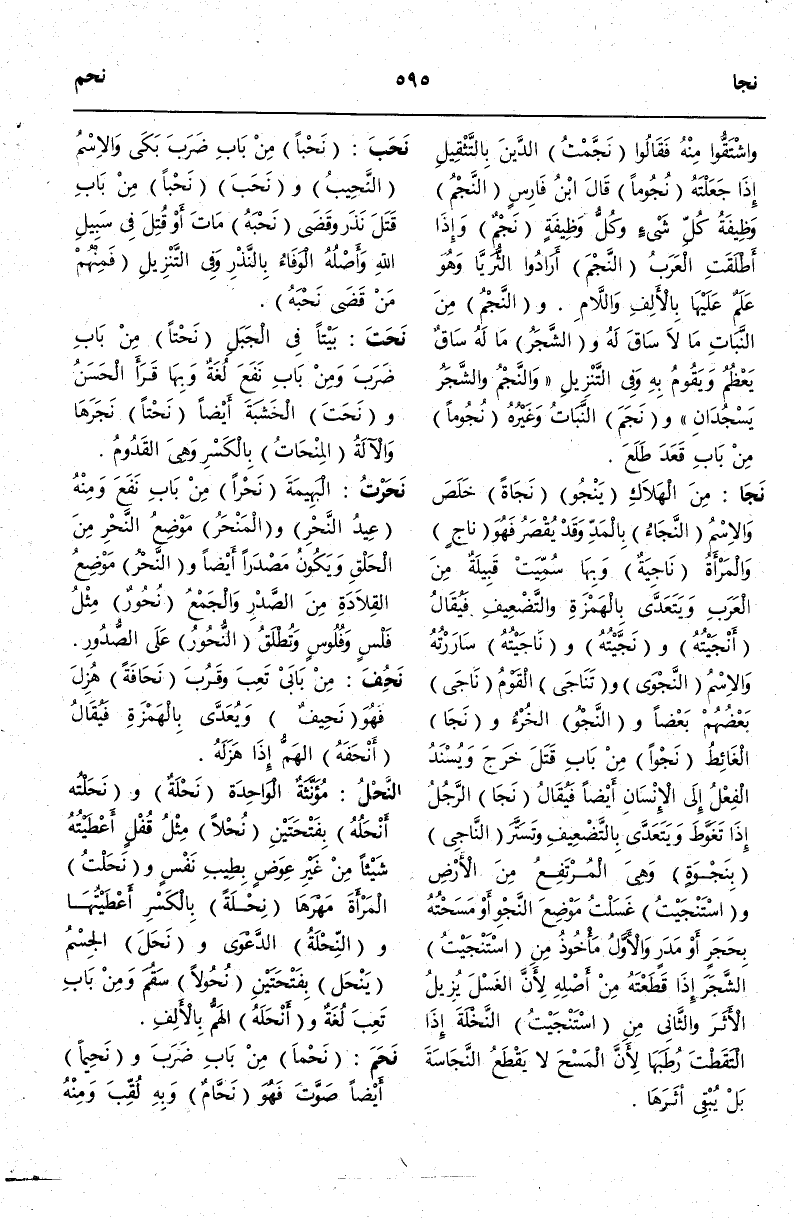 نجا
٥٩٥
نحم
واشْتَقُّوا مِنْهُ فَقَالُوا ( نَجَّمْتُ ) الدَّينَ بِالتَّثْقِيلِ
إِذَا جَعَلْتَهُ ( نُجُوماً ) قَالَ ابْنُ فَارِسٍ ( النَّجْمُ )
وَظِيفَةُ كُلِّ شَىْءٍ وكُلُّ وَظِيفَةٍ ( نَجْمٌ ) وَإِذَا
أَطْلَقَتِ الْعَرَبُ ( النَّجْمَ ) أَرَادُوا الثُّرَيَّا وَهُوَ
عَلَمٌ عَلَيْهَا بِالْأَلِفِ وَاللَّامِ . و ( النَّجْمُ ) مِنَ
النَّبَاتِ مَا لاَ سَاقَ لَهُ و ( الشَّجَرُ ) مَا لَهُ سَاقٌ
يَعْظُمُ وَيَقُومُ بِهِ وَفِى التَّنْزِيلِ « وَالنَّجْمُ والشَّجَرُ
يَسْجُدَانِ » و ( نَجَمَ ) النَّبَاتُ وَغَيْرُهُ ( نُجُوماً )
مِنْ بَابِ قَعَدَ طَلَعَ .
نَجَا : مِنَ الْهَلَاكِ ( يَنْجُو ) ( نَجَاةً ) خَلَصَ
وَالِاسْمُ ( النَّجَاءُ ) بِالْمَدِّ وَقَدْ يُقْصَرُ فَهُوَ ( ناجٍ )
وَالْمَرْأَةُ ( نَاجِيَةٌ ) وَبِهَا سُمِّيَتْ قَبِيلَةٌ مِنَ
الْعَرَبِ وَيَتَعَدَّى بِالْهَمْزَةِ والتَّضْعِيفِ فَيُقَالُ
( أَنْجَيْتُهُ ) و ( نَجَّيْتُهُ ) و ( نَاجَيْتُهُ ) سارَرْتُهُ
وَالِاسْمُ ( النَّجْوَى ) و ( تَنَاجَى ) الْقَوْمُ ( نَاجَى )
بَعْضُهُمْ بَعْضاً و ( النَّجْوُ ) الخُرْءُ و ( نَجَا )
الْغَائِطُ ( نَجْواً ) مِنْ بَابِ قَتَلَ خَرَجَ وَيُسْنَدُ
الْفِعْلُ إِلَى الْإِنْسَانِ أَيْضاً فَيُقَالُ ( نَجَا ) الرَّجُلُ
إِذَا تَغَوَّطَ وَيَتَعَدَّى بِالتَّضْعِيفِ وتَسَتَّرَ ( النَّاجِى )
( بِنَجْوَةٍ ) وَهِىَ الْمُرْتَفِعُ مِنَ الْأَرْضِ
و ( اسْتَنْجَيْتُ ) غَسَلْتُ مَوْضِعَ النَّجْوِ أَوْ مَسَحْتُهُ
بِحَجَرٍ أَوْ مَدَرٍ وَالْأَوَّلُ مَأْخُوذٌ مِنِ ( اسْتَنْجَيْتُ )
الشَّجَرَ إِذَا قَطَعْتَهُ مِنْ أَصْلِهِ لِأَنَّ الغَسْلَ يُزِيلُ
الْأَثَرَ وَالثَّانِى مِنِ ( اسْتَنْجَيْتُ ) النَّخْلَةَ إِذَا
الْتَقَطْتَ رُطَبَهَا لِأَنَّ الْمَسْحَ لا يَقْطَعُ النَّجَاسَةَ
بَلْ يُبْقِى أَثَرَهَا .
نَحَبَ : ( نَحْباً ) مِنْ بَابِ ضَرَبَ بَكَى وَالِاسْمُ
( النَّحِيبُ ) و ( نَحَبَ ) ( نَحْباً ) مِنْ بَابِ
قَتَلَ نَذَرَ وقَضَى ( نَحْبَهُ ) مَاتَ أَوْ قُتِلَ فِى سَبِيلِ
اللهِ وَأَصْلُهُ الْوَفَاءُ بِالنَّذْرِ وَفِى التَّنْزِيلِ ( فَمِنْهُمْ
مَنْ قَضَى نَحْبَهُ ) .
نَحَتَ : بَيْتاً فِى الْجَبَلِ ( نَحْتاً ) مِنْ بَابِ
ضَرَبَ وَمِنْ بَابِ نَفَعَ لُغَةٌ وَبِهَا قَرَأَ الْحَسَنُ
و ( نَحَتَ ) الْخَشَبَةَ أَيْضاً ( نَحْتاً ) نَجَرَهَا
وَالْآلَةُ ( المِنْحَاتُ ) بِالْكَسْرِ وَهِىَ القَدُومُ .
نَحَرْتُ : الْبَهِيمَةَ ( نَحْراً ) مِنْ بَابِ نَفَعَ وَمِنْهُ
( عِيدُ النَّحْرِ ) و ( الْمَنْحَرُ ) مَوْضِعُ النَّحْرِ مِنَ
الْحَلْقِ وَيَكُونُ مَصْدَراً أَيْضاً و ( النَّحْرُ ) مَوْضِعُ
القِلاَدَةِ مِنَ الصَّدْرِ وَالْجَمْعُ ( نُحُورٌ ) مِثْلُ
فَلْسٍ وَفُلُوسٍ وَتُطْلَقُ ( النُّحُورُ ) عَلَى الصُّدُورِ .
نَحُفَ : مِنْ بَابَىْ تَعِبَ وَقَرُبَ ( نَحَافَةً ) هُزِلَ
فَهُوَ ( نَحِيفٌ ) وَيُعَدَّى بِالْهَمْزَةِ فَيُقَالُ
( أَنْحَفَهُ ) الهَمُّ إِذَا هَزَلَهُ .
النَّحْلُ : مُؤَنَّثَةٌ الْوَاحِدَة ( نَحْلَةٌ ) و ( نَحَلْتُه
أَنْحَلُهُ ) بِفَتْحَتَيْنِ ( نُحْلاً ) مِثْلُ قُفْلٍ أَعْطَيْتُهُ
شَيْئاً مِنْ غَيْرِ عِوَضٍ بِطِيبِ نَفْسٍ و ( نَحَلْتُ )
الْمَرْأَةَ مَهْرَهَا ( نِحْلَةً ) بِالْكَسْرِ أَعْطَيْتُهَا
و ( النِّحْلَةُ ) الدَّعْوَى و ( نَحَلَ ) الجِسْمُ
( يَنْحَل ) بِفَتْحَتَيْنِ ( نُحُولاً ) سَقُمَ وَمِنْ بَابِ
تَعِبَ لُغَةٌ و ( أَنْحَلَهُ ) الهَمُّ بِالْأَلِفِ .
نَحَمَ : ( نَحْماً ) مِنْ بَابِ ضَرَبَ و ( نَحِيماً )
أَيْضاً صَوَّتَ فَهُوَ ( نَحَّامٌ ) وَبِهِ لُقِّبَ وَمِنْهُ